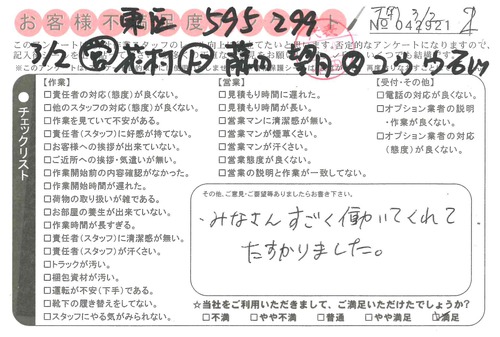 お客様不満足度
東区 595299
№ 042921
3/2
【作業】
□責任者の対応(態度)が良くない。
□他のスタッフの対応(態度)が良くない。
□作業を見ていて不安がある。
□責任者(スタッフ)に好感が持てない。
□お客様への挨拶が出来ていない。
□ご近所への挨拶・気遣いが無い。
□作業開始前の内容確認がなかった。
□作業開始時間が遅れた。
□荷物の取り扱いが雑である。
□お部屋の養生が出来ていない。
□作業時間が長すぎる。
□責任者(スタッフ)に清潔感が無い。
□責任者(スタッフ)が汗くさい。
□トラックが汚い。
□梱包資材が汚い。
□運転が不安(下手)である。
□靴下の履き替えをしてない。
□スタッフにやる気がみられない。
【営業】
□見積もり時間に遅れた。
□見積もり時間が長い。
□営業マンに清潔感が無い。
□営業マンが煙草くさい。
□営業マンが汗くさい。
□営業態度が良くない。
□営業の説明と作業が一致してない。
【受付・その他】
□電話の対応が良くない。
□オプション業者の説明
・作業が良くない。
□オプション業者の対応
(態度)が良くない。
●チェックリスト
その他、ご意見・ご要望等ありましたらお書き下さい。
・みなさんすごく働いてくれて
たすかりました。
☆当社をご利用いただきまして、ご満足いただけたでしょうか?
□不満 □やや不満 □普通 □やや満足 □満足